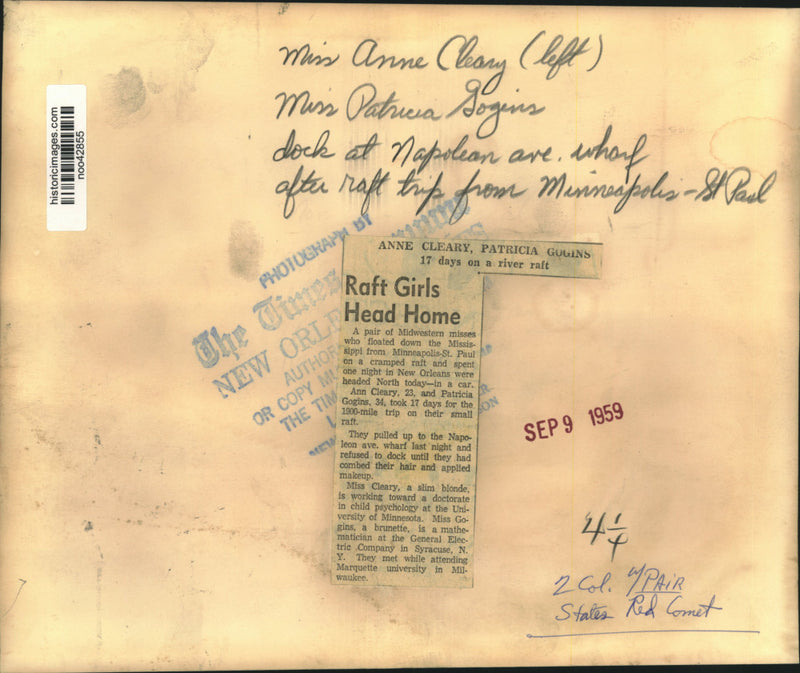 Miss Anne Cleary (left)
Miss Patricia Gogins
dock at Napolean ave. wharf
after raft trip from Minneapolis-St Paul
historicimages.com
noo42855
PHOTOGRAPH BY
The Times
NEW ORLE
AUTHOR
OR COPY MU
THE TIM
NEW
ANNE CLEARY, PATRICIA GOGINS
17 days on a river raft
Raft Girls
Head Home
A pair of Midwestern misses
who floated down the Missis-
sippi from Minneapolis-St. Paul
on a cramped raft and spent
one night in New Orleans were
headed North today—in a car.
Ann Cleary, 23, and Patricia
Gogins, 34, took 17 days for the
1900-mile trip on their small
raft.
They pulled up to the Napo-
leon ave. wharf last night and
refused to dock until they had
combed their hair and applied
makeup.
Miss Cleary, a slim blonde,
is working toward a doctorate
in child psychology at the Uni-
versity of Minnesota. Miss Go-
gins, a brunette, is a mathe-
matician at the General Elec-
tric Company in Syracuse, N.
Y. They met while attending
Marquette university in Mil-
waukee.
SEP 9 1959
4 1/4
2 Col. w/PAIR
States Red Comet